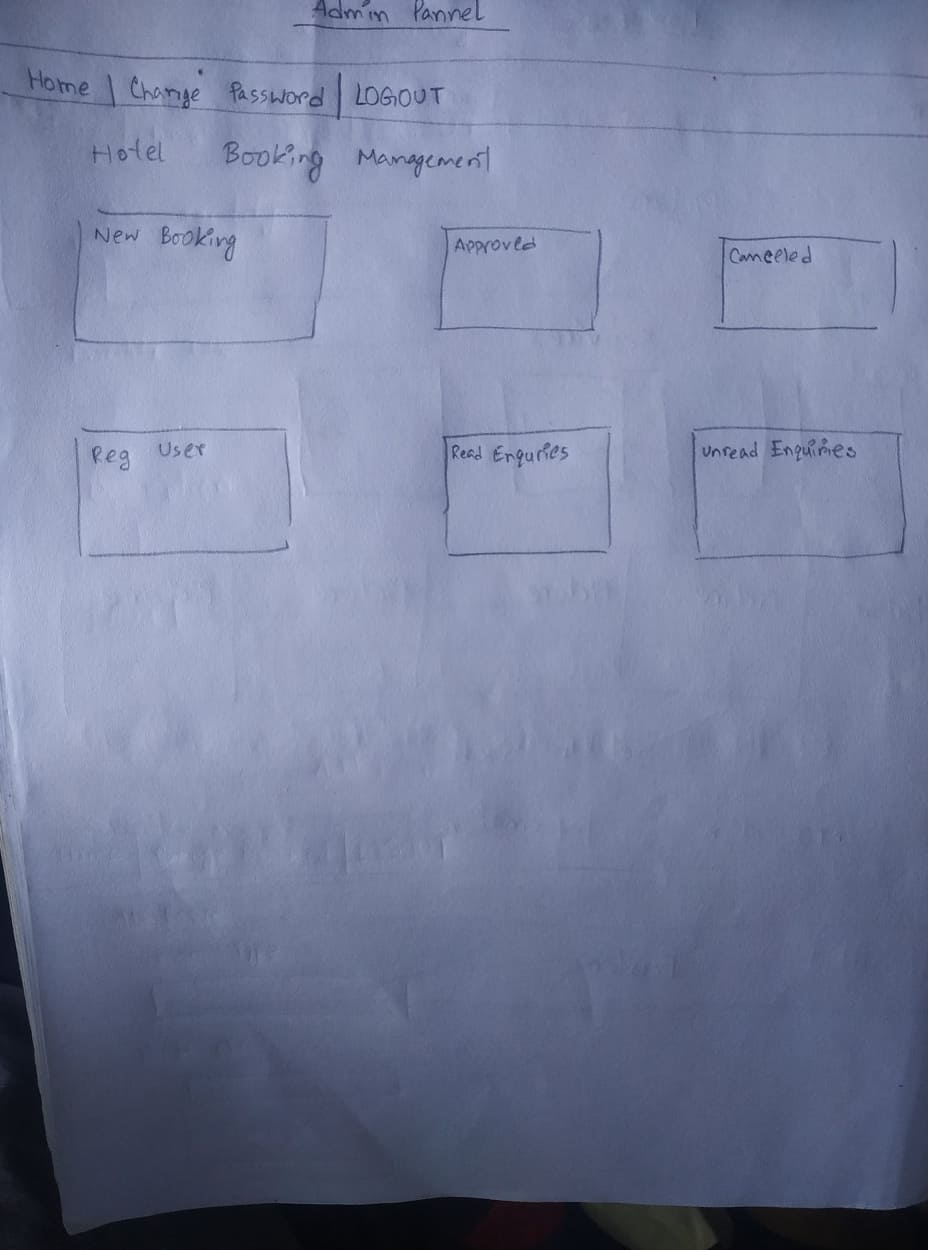 Admin Pannel
Home | Change Password | LOGOUT
Hotel Booking Management
New Booking
Approved
Canceled
Reg User
Read Enquries
Unread Enquiries